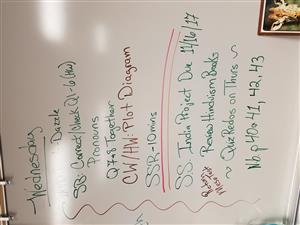 Wednesday
Dazzle
SB: Correct/Check Q1-6 (HW)
Pronouns
Q7+8 Together
CW/HW: Plot Diagram
SSR-10mins
SS: India Project Due 11/16/17
Review Hinduism Books
~ Quiz Redos on Thurs ~
Nb. p 40+41, 42, 43